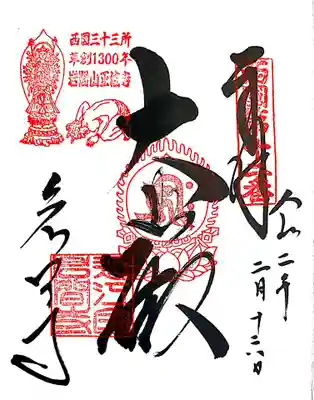 西國三十三所
草創1300年
岩間山正法寺
奉拝
西国第十二番
二年
二月十六日
大悲殿
岩間寺